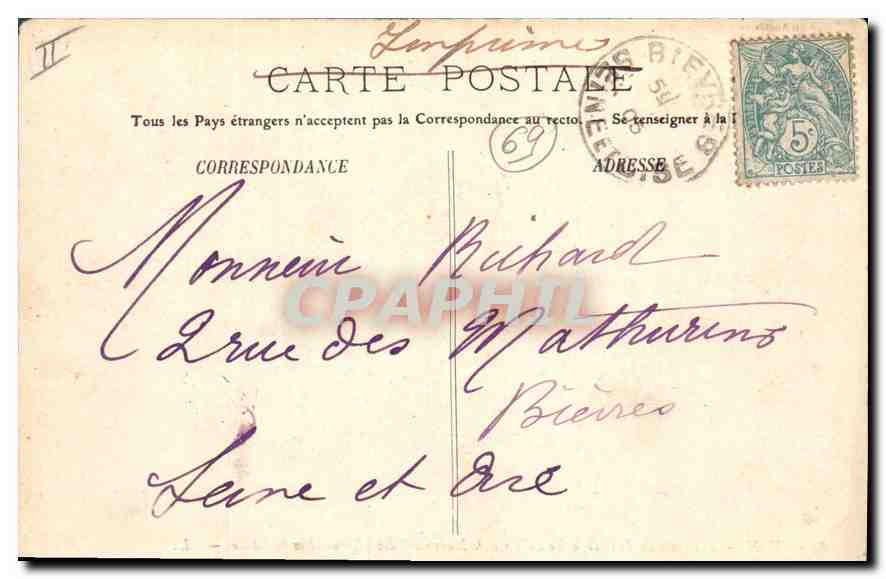 II
Imprimés
CARTE POSTALE
Tous les Pays étrangers n'acceptent pas la Correspondance au recto. — Se renseigner à la
69
BIEVRES
SEINE ET OISE
5c
POSTES
CORRESPONDANCE
ADRESSE
Monsieur Richard
2 rue des Mathurins
Bièvres
Seine et Oise
CPAPHIL